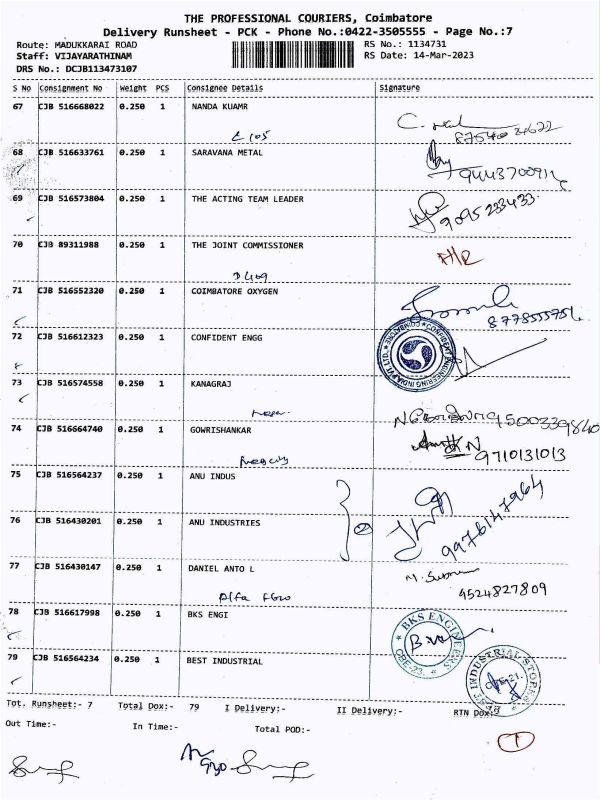 THE PROFESSIONAL COURIERS, Coimbatore
Delivery Runsheet - PCK - Phone No.:0422-3505555 - Page No.:7
Route: MADUKKARAI ROAD RS No.: 1134731
Staff: VIJAYARATHINAM RS Date: 14-Mar-2023
DRS No.: DCJB113473107
S No Consignment No Weight PCS Consignee Details Signature
67 CJB 516668022 0.250 1 NANDA KUAMR
68 CJB 516633761 0.250 1 SARAVANA METAL
69 CJB 516573804 0.250 1 THE ACTING TEAM LEADER
9095233433
70 CJB 89311988 0.250 1 THE JOINT COMMISSIONER
D409
71 CJB 516552320 0.250 1 COIMBATORE OXYGEN
72 CJB 516612323 0.250 1 CONFIDENT ENGG
CONFIDENT ENGINEERING INDIA PVT LTD. COIMBATORE
73 CJB 516574558 0.250 1 KANAGRAJ
9500339840
74 CJB 516664740 0.250 1 GOWRISHANKAR
9710131013
75 CJB 516564237 0.250 1 ANU INDUS
76 CJB 516430201 0.250 1 ANU INDUSTRIES
9976147964
77 CJB 516430147 0.250 1 DANIEL ANTO L
9524827809
78 CJB 516617998 0.250 1 BKS ENGI
BKS ENGINEERS CBE-23.
79 CJB 516564234 0.250 1 BEST INDUSTRIAL
BEST INDUSTRIAL STORES
Tot. Runsheet:- 7 Total Dox:- 79 I Delivery:- II Delivery:- RTN Dox:-
Out Time:- In Time:- Total POD:-
1